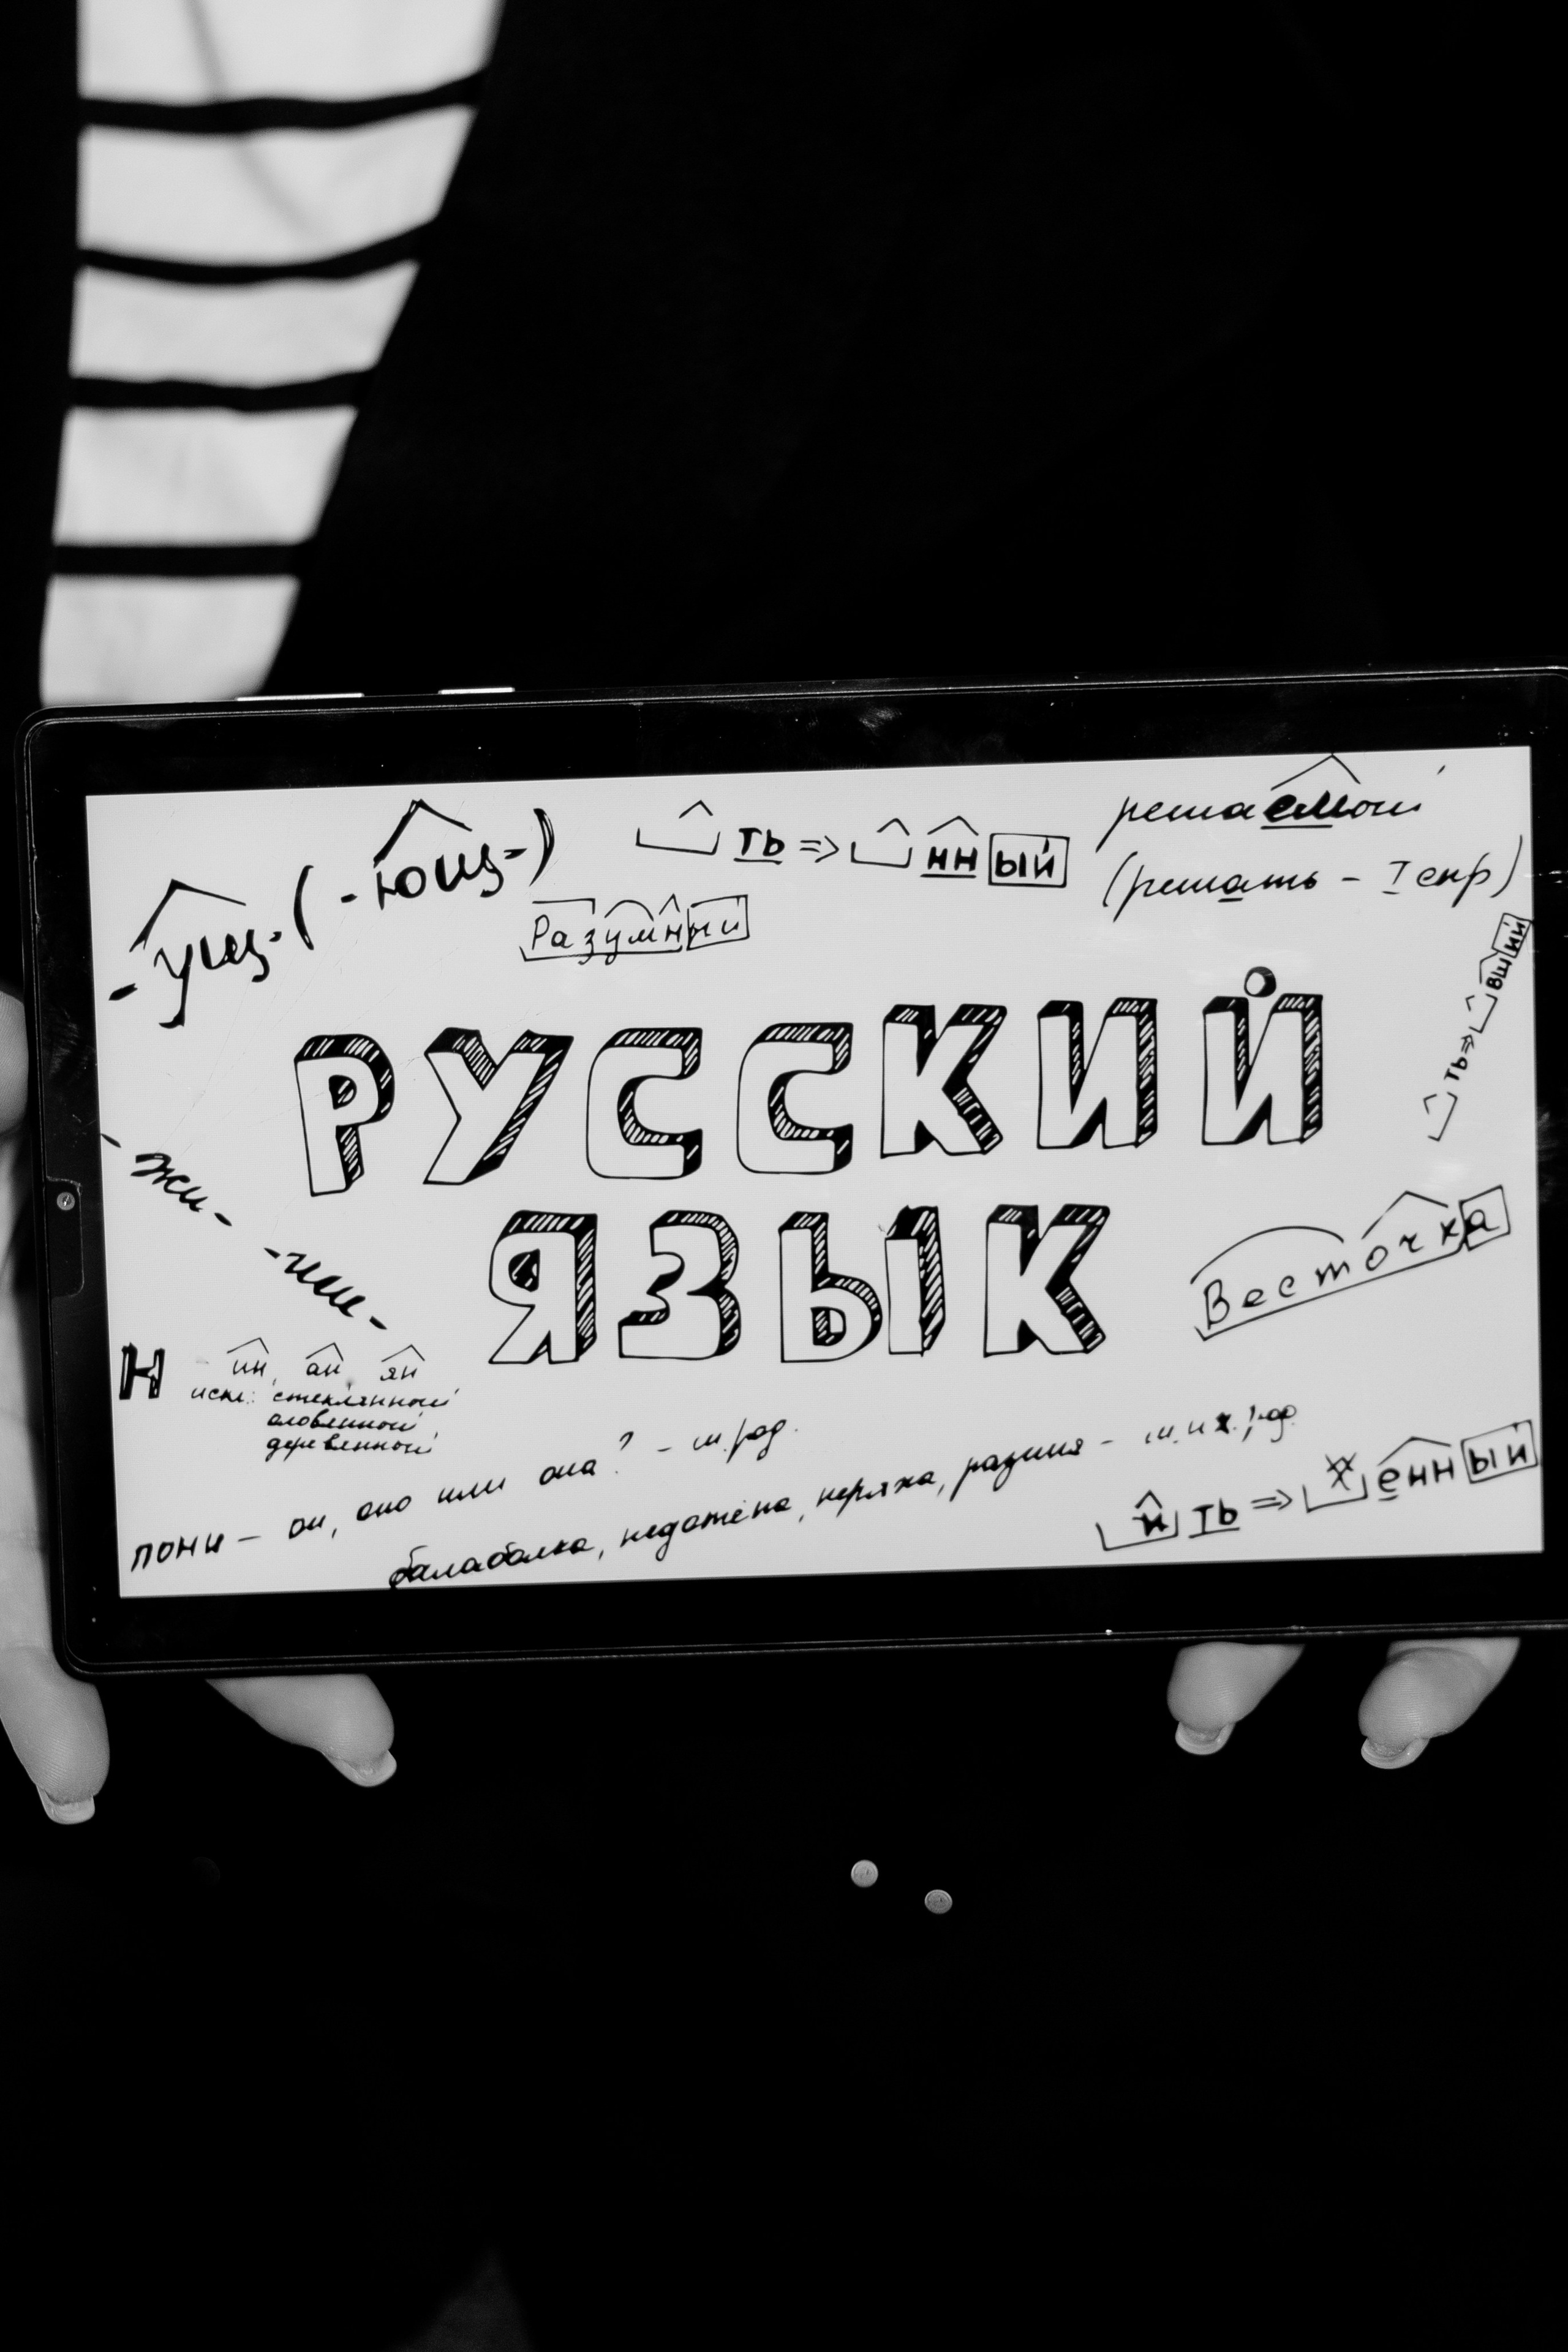 -ущ- (-ющ-)
ть => нный
решаемый
(решать - I спр)
Разумный
ть => вший
РУССКИЙ
ЯЗЫК
-жи-
-ши-
Весточка
Н - ин, ан, ян
искл: стеклянный
оловянный
деревянный
пони - он, оно или она? - м. род.
балаболка, недотёпа, неряха, разиня - м. и ж. род
и ть => енный